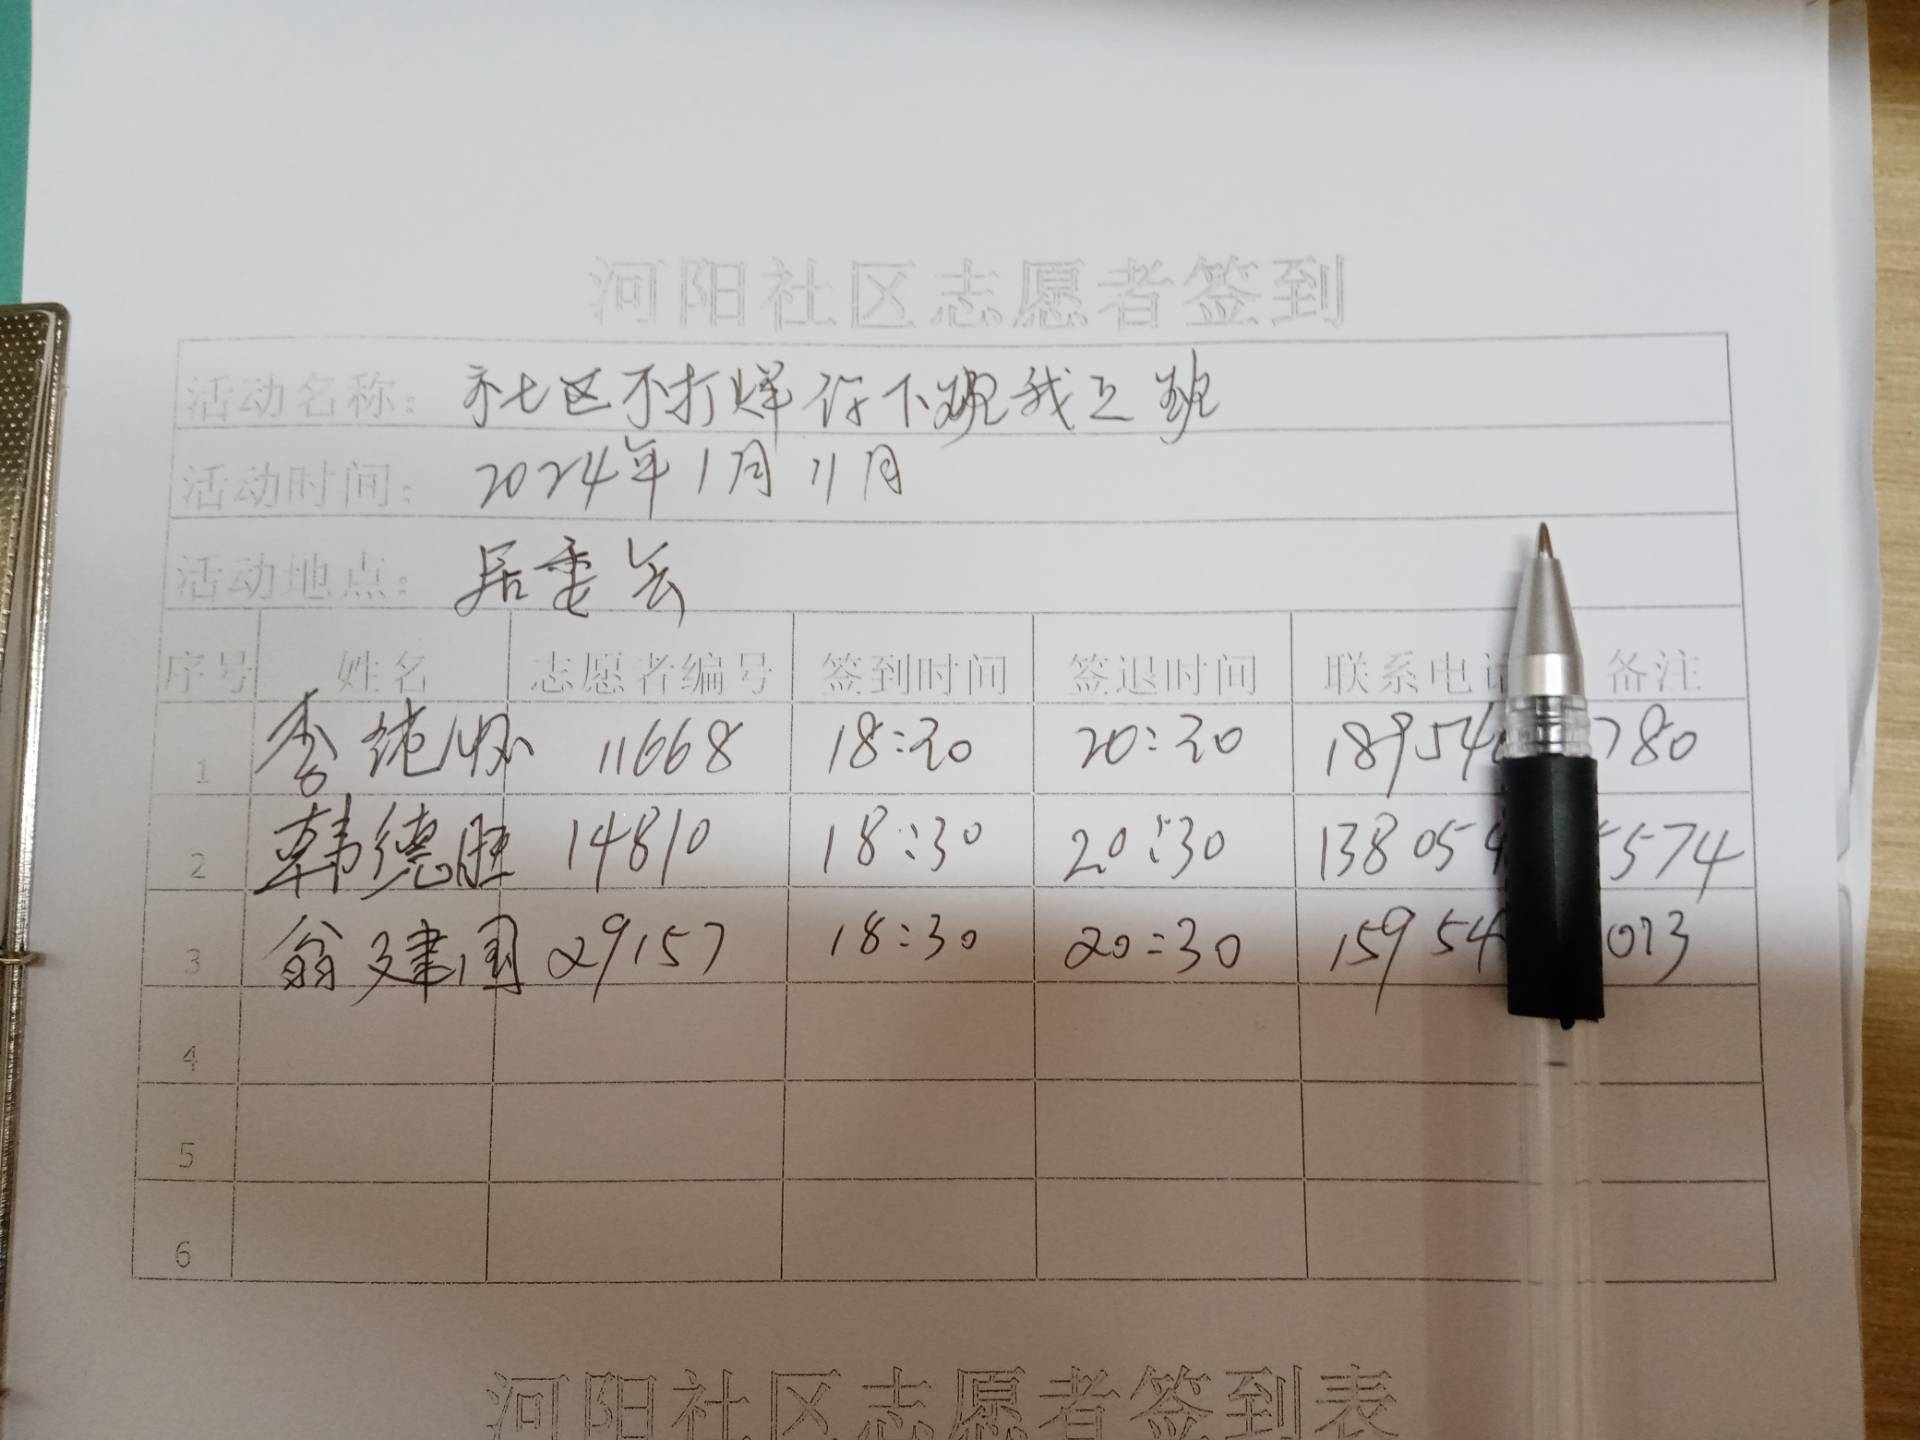 河阳社区志愿者签到
活动名称：社区不打烊 你下班我上班
活动时间：2024年1月11月
活动地点：居委会
序号 姓名 志愿者编号 签到时间 签退时间 联系电 备注
1 李纯怀 11668 18:30 20:30 18954 780
2 韩德胜 14810 18:30 20:30 138054 5574
3 翁建国 29157 18:30 20:30 15954 013
4
5
6
河阳社区志愿者签到表